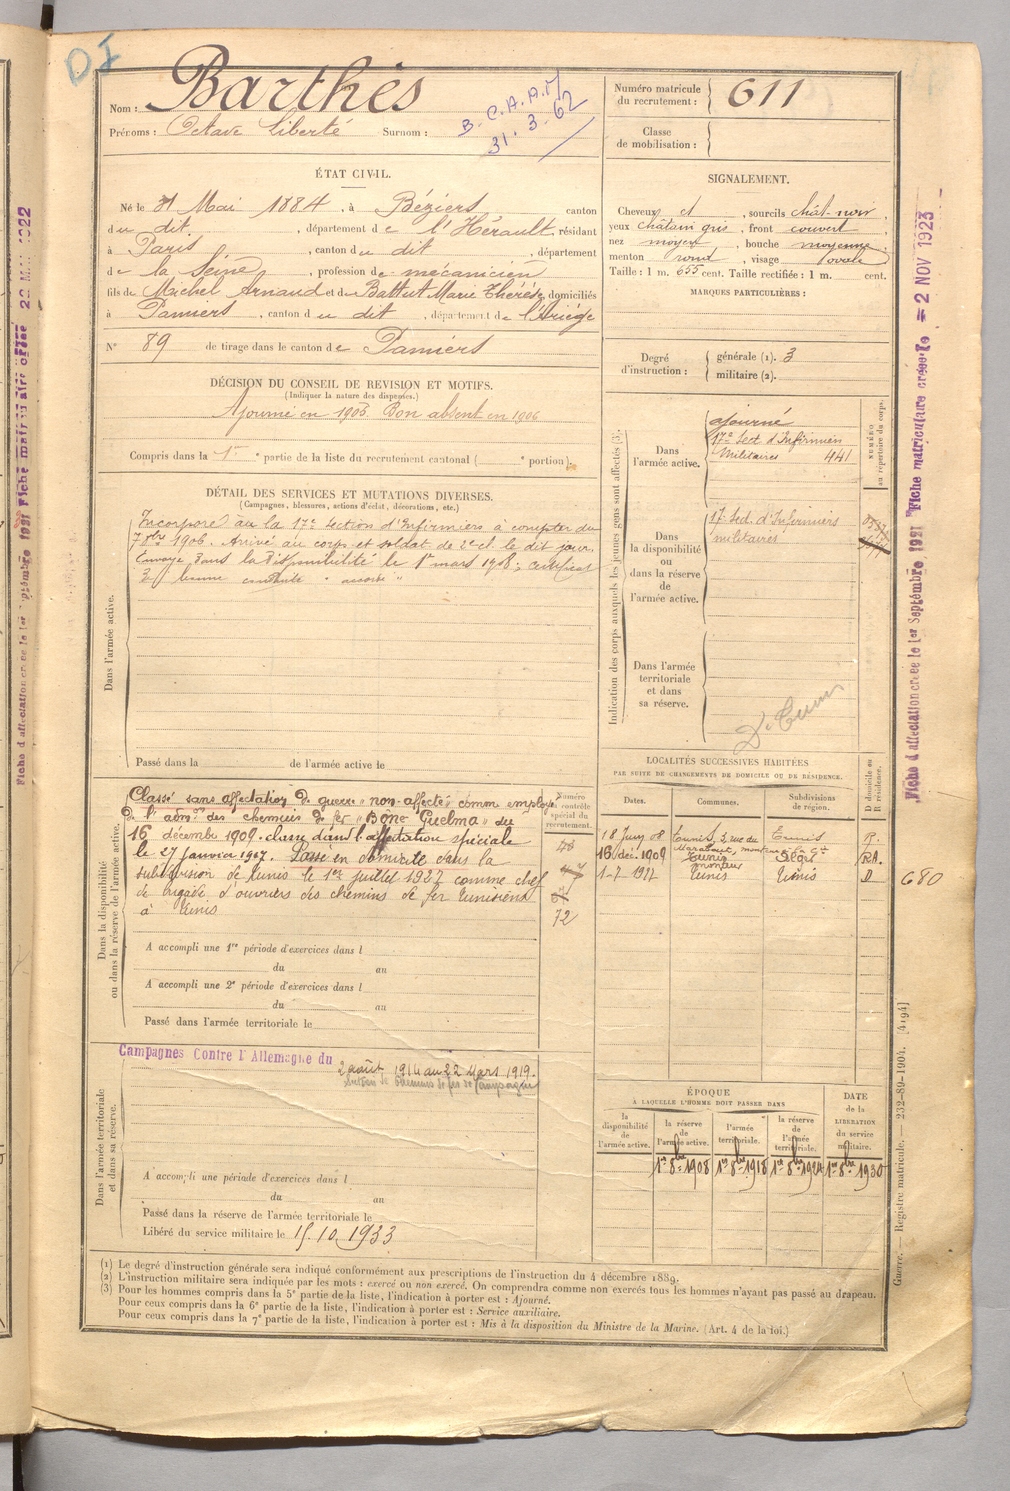 DI
Nom : Barthés
Prénoms : Octave liberté Surnom :
B.C.A.A.M
31.3.62
Numéro matricule du recrutement : 611
Classe de mobilisation :
ÉTAT CIVIL.
Né le 31 Mai 1884, à Béziers canton
du dit, département de l'Hérault, résidant
à Paris, canton du dit, département
de la Seine, profession de mécanicien
fils de Michel Arnaud et de Battut Marie Thérèse, domiciliés
à Pamiers, canton du dit, département de l'Ariège
N° 89 de tirage dans le canton de Pamiers
DÉCISION DU CONSEIL DE REVISION ET MOTIFS.
(Indiquer la nature des dispenses.)
Ajourné en 1905. Bon absent en 1906
Compris dans la 1re partie de la liste du recrutement cantonal ( portion).
SIGNALEMENT.
Cheveux et, sourcils chât-noir,
yeux châtain gris, front couvert,
nez moyen, bouche moyenne,
menton rond, visage ovale
Taille : 1 m. 655 cent. Taille rectifiée : 1 m. cent.
MARQUES PARTICULIÈRES :
Degré d'instruction : générale (1). 3
militaire (2).
DÉTAIL DES SERVICES ET MUTATIONS DIVERSES.
(Campagnes, blessures, actions d'éclat, décorations, etc.)
Dans l'armée active.
Incorporé à la 17e Section d'Infirmiers à compter du
7 8bre 1906. Arrivé au corps et soldat de 2e cl. le dit jour.
Envoyé dans la Disponibilité le 1 mars 1908, certificat
de bonne conduite " accordé "
Passé dans la de l'armée active le
Indication des corps auxquels les jeunes gens sont affectés (3).
NUMÉRO au répertoire du corps.
Dans l'armée active.
ajourné
17e Sect d'Infirmiers
Militaires 441
Dans la disponibilité ou dans la réserve de l'armée active.
17 Sect. d'Infirmiers
militaires
Dans l'armée territoriale et dans sa réserve.
Dans la disponibilité ou dans la réserve de l'armée active.
Classé sans affectation de guerre "non-affecté" comme employé
de l'admon des chemins de fer "Bône Guelma" du
16 décembre 1909. classé dans l'affectation spéciale
le 27 janvier 1927. Passé en domicile dans la
subdivision de Tunis le 1er juillet 1927 comme chef
de brigade d'ouvriers des chemins de fer tunisiens
à Tunis
Numéro de contrôle spécial du recrutement.
72
A accompli une 1re période d'exercices dans l
du au
A accompli une 2e période d'exercices dans l
du au
Passé dans l'armée territoriale le
LOCALITÉS SUCCESSIVES HABITÉES
PAR SUITE DE CHANGEMENTS DE DOMICILE OU DE RÉSIDENCE.
Dates. Communes. Subdivisions de région. D domicile ou R résidence.
18 Juin 08 Tunis, 2, rue du Tunis R.
Marabout, monteur
16 déc. 1909 Tunis RA.
monteur
1-7 1927 Tunis Tunis D
680
Dans l'armée territoriale et dans sa réserve.
Campagnes Contre l'Allemagne du
2 août 1914 au 22 Mars 1919.
section de Chemins de fer de Campagne
A accompli une période d'exercices dans l
du au
Passé dans la réserve de l'armée territoriale le
Libéré du service militaire le 15.10.1933
ÉPOQUE
À LAQUELLE L'HOMME DOIT PASSER DANS
la disponibilité de l'armée active.
la réserve de l'armée active.
l'armée territoriale.
la réserve de l'armée territoriale.
DATE de la LIBÉRATION du service militaire.
1er 8bre 1908 1er 8bre 1918 1er 8bre 1924 1er 8bre 1930
(1) Le degré d'instruction générale sera indiqué conformément aux prescriptions de l'instruction du 4 décembre 1889.
(2) L'instruction militaire sera indiquée par les mots : exercé ou non exercé. On comprendra comme non exercés tous les hommes n'ayant pas passé au drapeau.
(3) Pour les hommes compris dans la 5e partie de la liste, l'indication à porter est : Ajourné.
Pour ceux compris dans la 6e partie de la liste, l'indication à porter est : Service auxiliaire.
Pour ceux compris dans la 7e partie de la liste, l'indication à porter est : Mis à la disposition du Ministre de la Marine. (Art. 4 de la loi.)
Guerre. — Registre matricule. — 232-89-1904. [4194]
Fiche d'affectation créée le 1er Septembre 1921 Fiche matriculaire créée le 2 NOV 1923